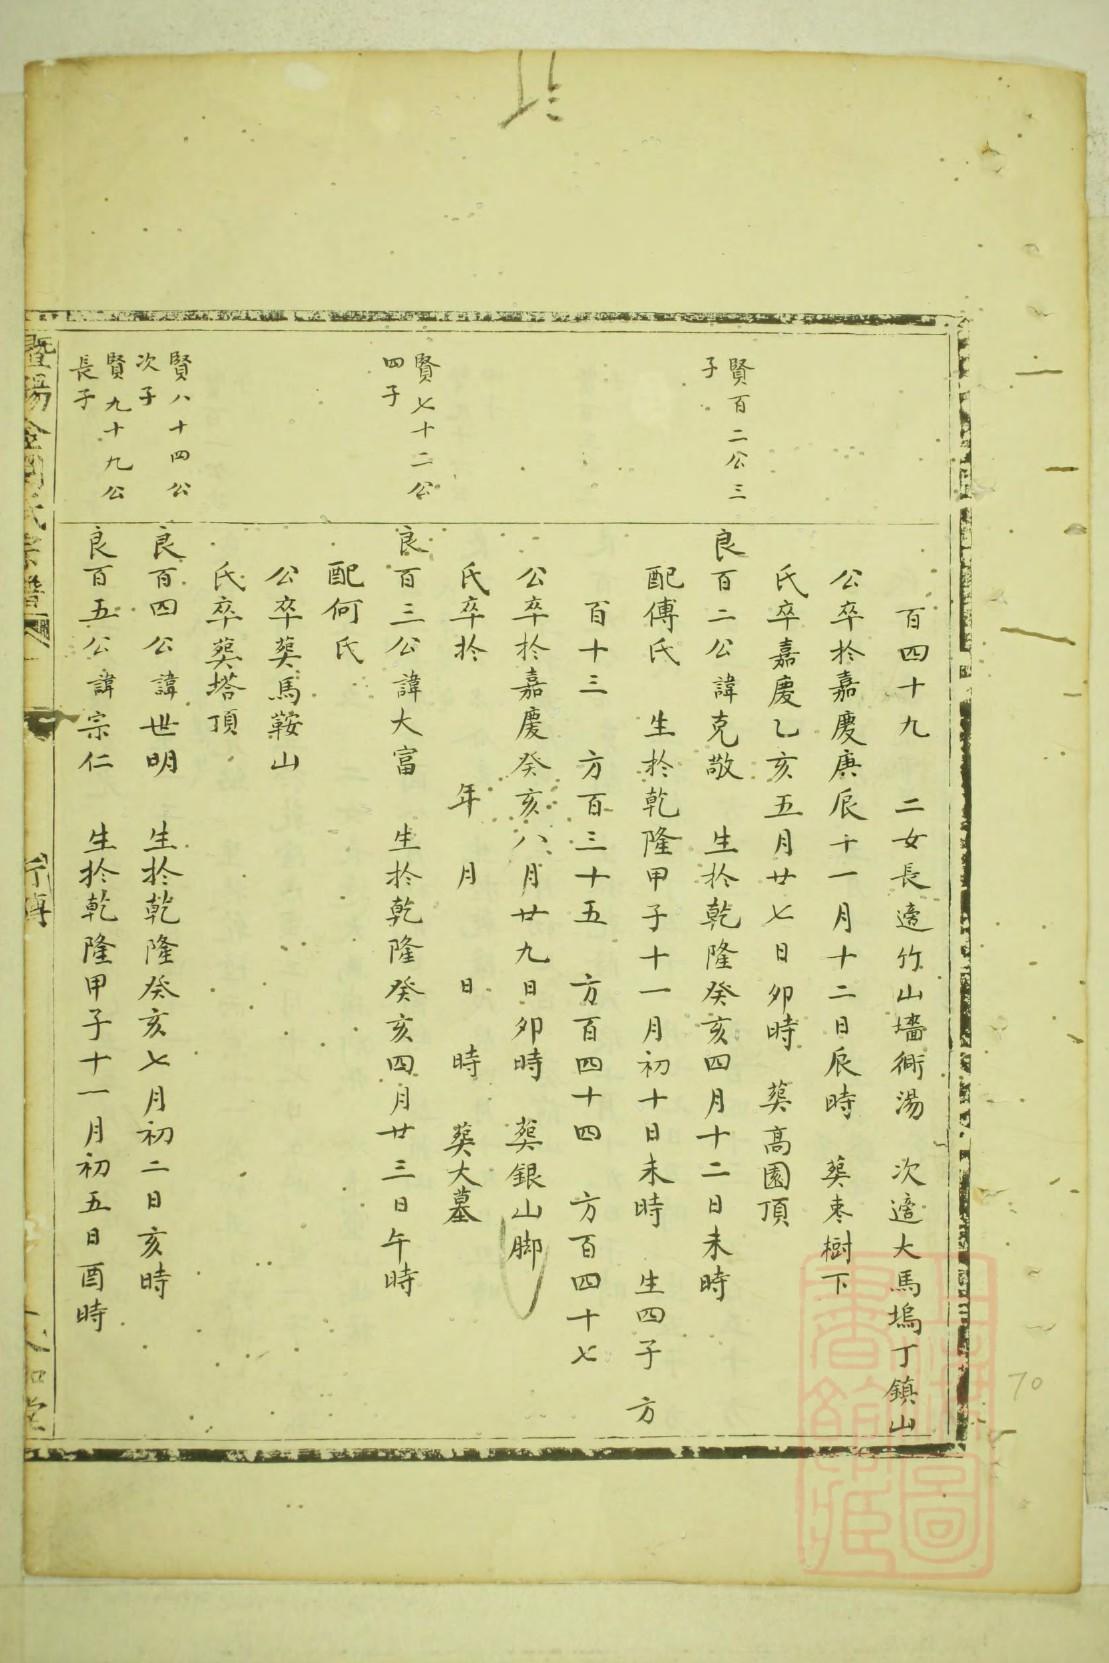 百四十九 二女長適竹山墻衕湯 次適大馬塢丁鎮山
公卒於嘉慶庚辰十一月十二日辰時 葬枣樹下
氏卒嘉慶乙亥五月廿七日卯時 葬高園頂
賢百二公三子
良百二公諱克敬 生於乾隆癸亥四月十二日未時
配傅氏 生於乾隆甲子十一月初十日未時 生四子 方
百十三 方百三十五 方百四十四 方百四十七
公卒於嘉慶癸亥八月廿九日卯時 葬銀山脚
氏卒於 年 月 日 時 葬大墓
賢七十二公四子
良百三公諱大富 生於乾隆癸亥四月廿三日午時
配何氏
公卒葬馬鞍山
氏卒葬塔頂
賢八十四公次子
良百四公諱世明 生於乾隆癸亥七月初二日亥時
賢九十九公長子
良百五公諱宗仁 生於乾隆甲子十一月初五日酉時
暨陽 氏宗譜
行傳
70